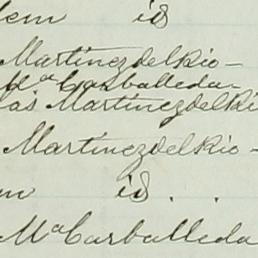 dem id
Martinez del Rio -
Mª Carballeda -
las Martinez del Ri
Martinez del Rio -
m id . .
Mª Carballeda